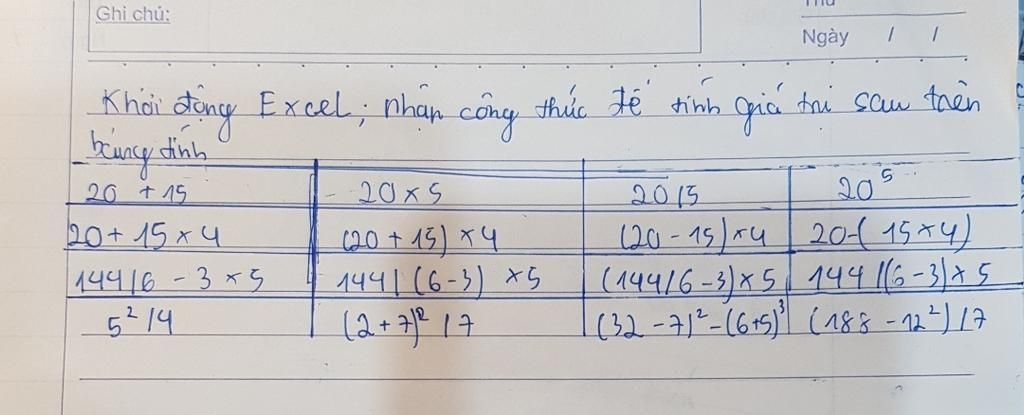 Ghi chú:
Thứ
Ngày / /
Khởi động Excel, nhận công thức để tính giá trị sau trên
bảng tính
20 + 15 20 × 5 20/5 20⁵
20 + 15 × 4 (20 + 15) × 4 (20 - 15) × 4 20-( 15 × 4)
144/6 - 3 × 5 144/(6-3) × 5 (144/6 - 3) × 5 144/(6-3) × 5
5²/4 (2+7)²/7 (32 - 7)² - (6+5)³ (188 - 12²)/7